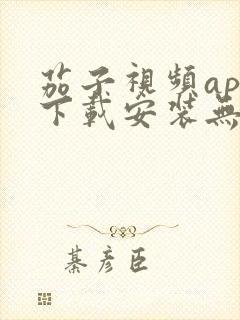 茄子視頻ap
下載安裝無
綦彥臣